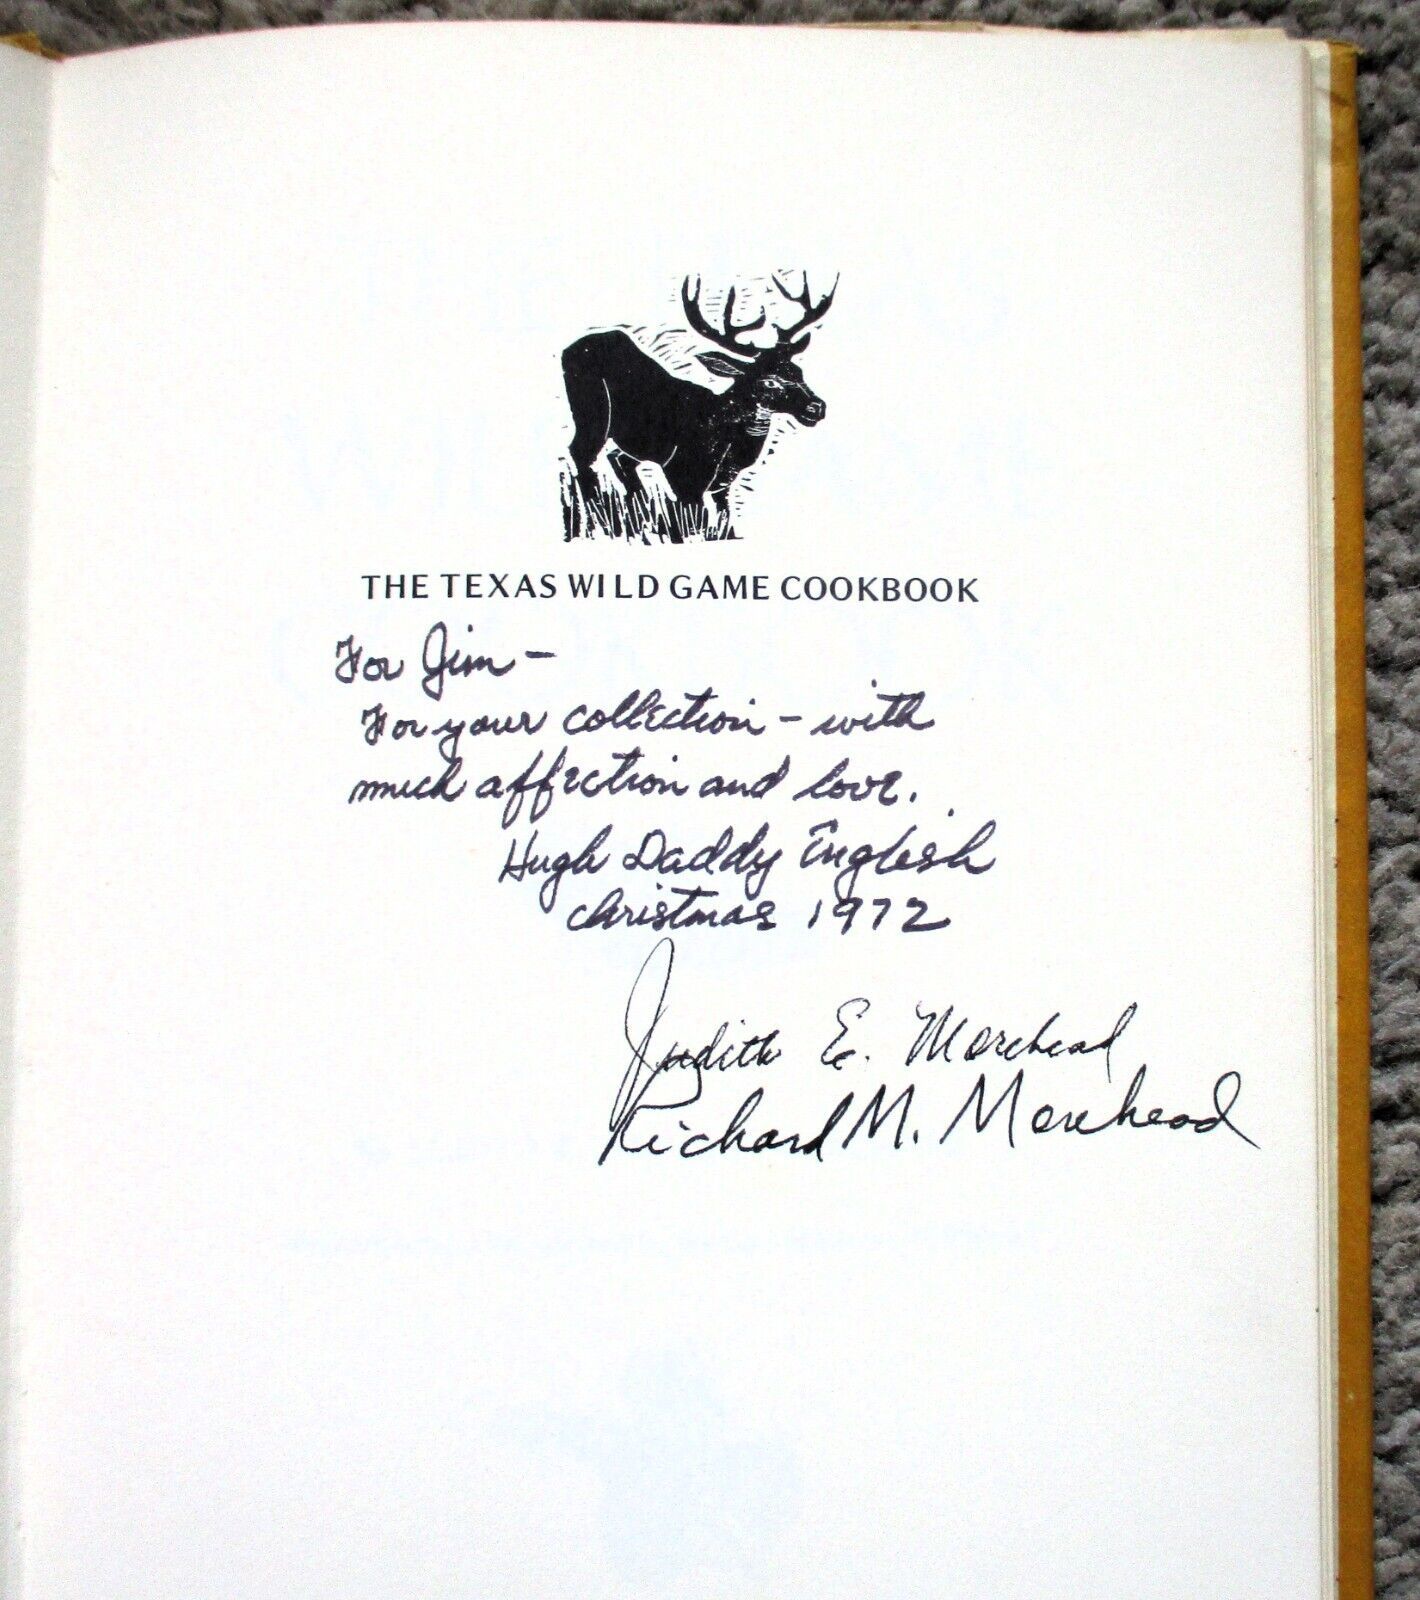 THE TEXAS WILD GAME COOKBOOK
For Jim –
For your collection – with
much affection and love.
Hugh Daddy English
Christmas 1972
Judith E. Morehead
Richard M. Morehead